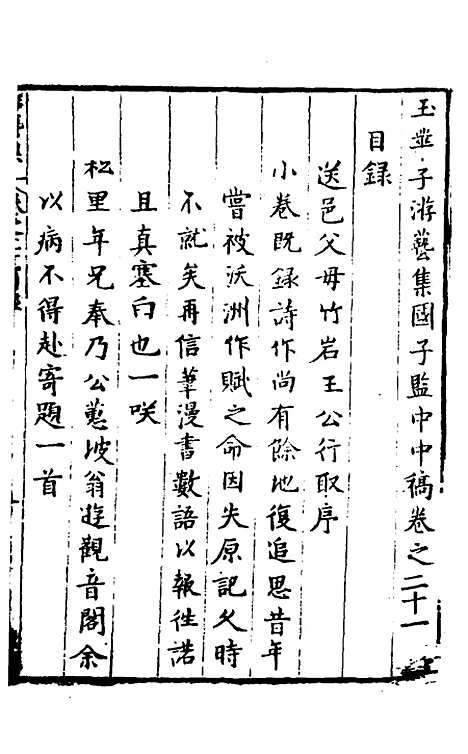 玉華子游藝集國子監中中稿卷之二十一
目録
送邑父母竹岩王公行取序
小卷既録詩作尚有餘地復追思昔年
嘗被沃洲作賦之命因失原記父時
不就矣再信筆漫書數語以報徃諾
且真塞白也一咲
松里年兄奉乃公蔥坡翁遊觀音閣余
以病不得赴寄題一首